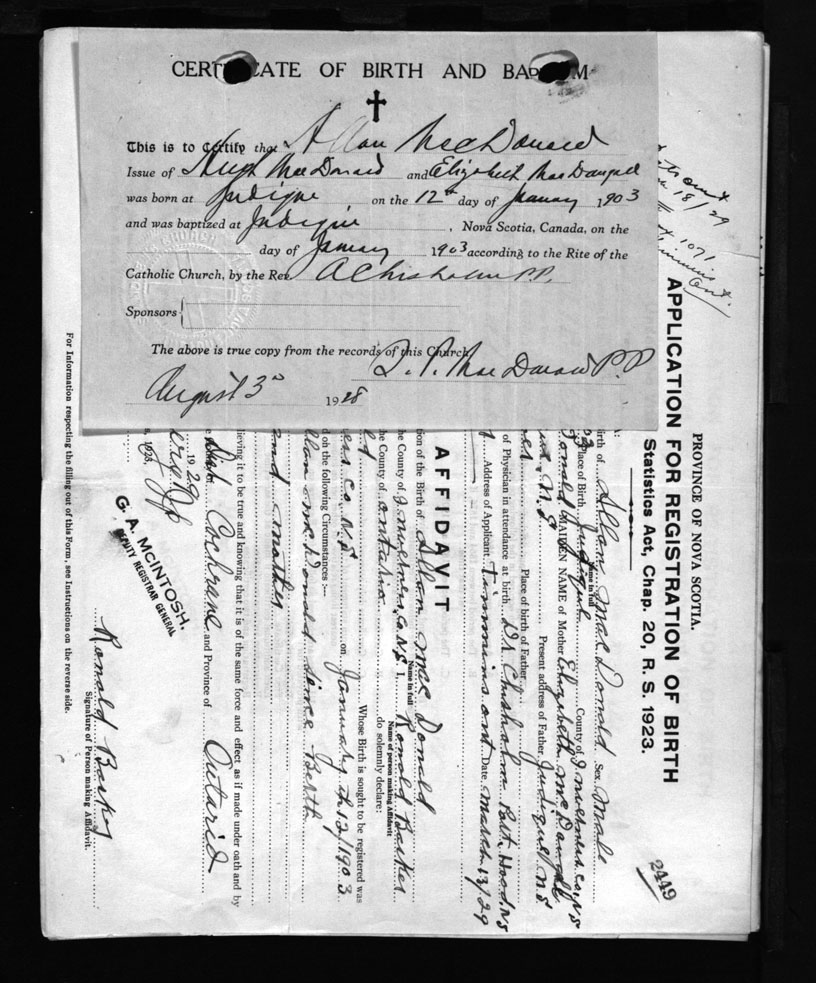 CERTIFICATE OF BIRTH AND BAPTISM
This is to Certify that Allan MacDonald
Issue of Hugh MacDonald and Elizabeth MacDougal
was born at Judique on the 12th day of January 1903
and was baptized at Judique, Nova Scotia, Canada, on the
day of January 1903 according to the Rite of the
Catholic Church, by the Rev. A Chisholm P.P.
Sponsors
The above is true copy from the records of this Church
MacDonald P.P
August 3 1928
18/29
1071
Timmins
Ont.
PROVINCE OF NOVA SCOTIA.
APPLICATION FOR REGISTRATION OF BIRTH
Statistics Act, Chap. 20, R. S. 1923.
2449
Birth of Allan MacDonald Sex Male
Name in full
Place of Birth Judique County of Inverness Co. N S
MAIDEN NAME of Mother Elizabeth McDougall
N. S Present address of Father Judique N S
Place of birth of Father
of Physician in attendance at birth Dr Chisholm Port Hood N S
Address of Applicant Timmins Ont Date March 13/29
AFFIDAVIT
tion of the Birth of Allan MacDonald
Name in full
he County of Inverness Co N S I, Ronald Barker
Name of person making Affidavit
he County of Ontario do solemnly declare:
Whose Birth is sought to be registered was
Co. N. S on January 12/1903
d on the following Circumstances :—
McDonald since Berth
and mother
ieving it to be true and knowing that it is of the same force and effect as if made under oath and by
Dist. Cochrane and Province of Ontario
1929
, 1923.
G. A. McINTOSH.
DEPUTY REGISTRAR GENERAL
Ronald Barker
Signature of Person making Affidavit.
For Information respecting the filling out of this Form, see Instructions on the reverse side.